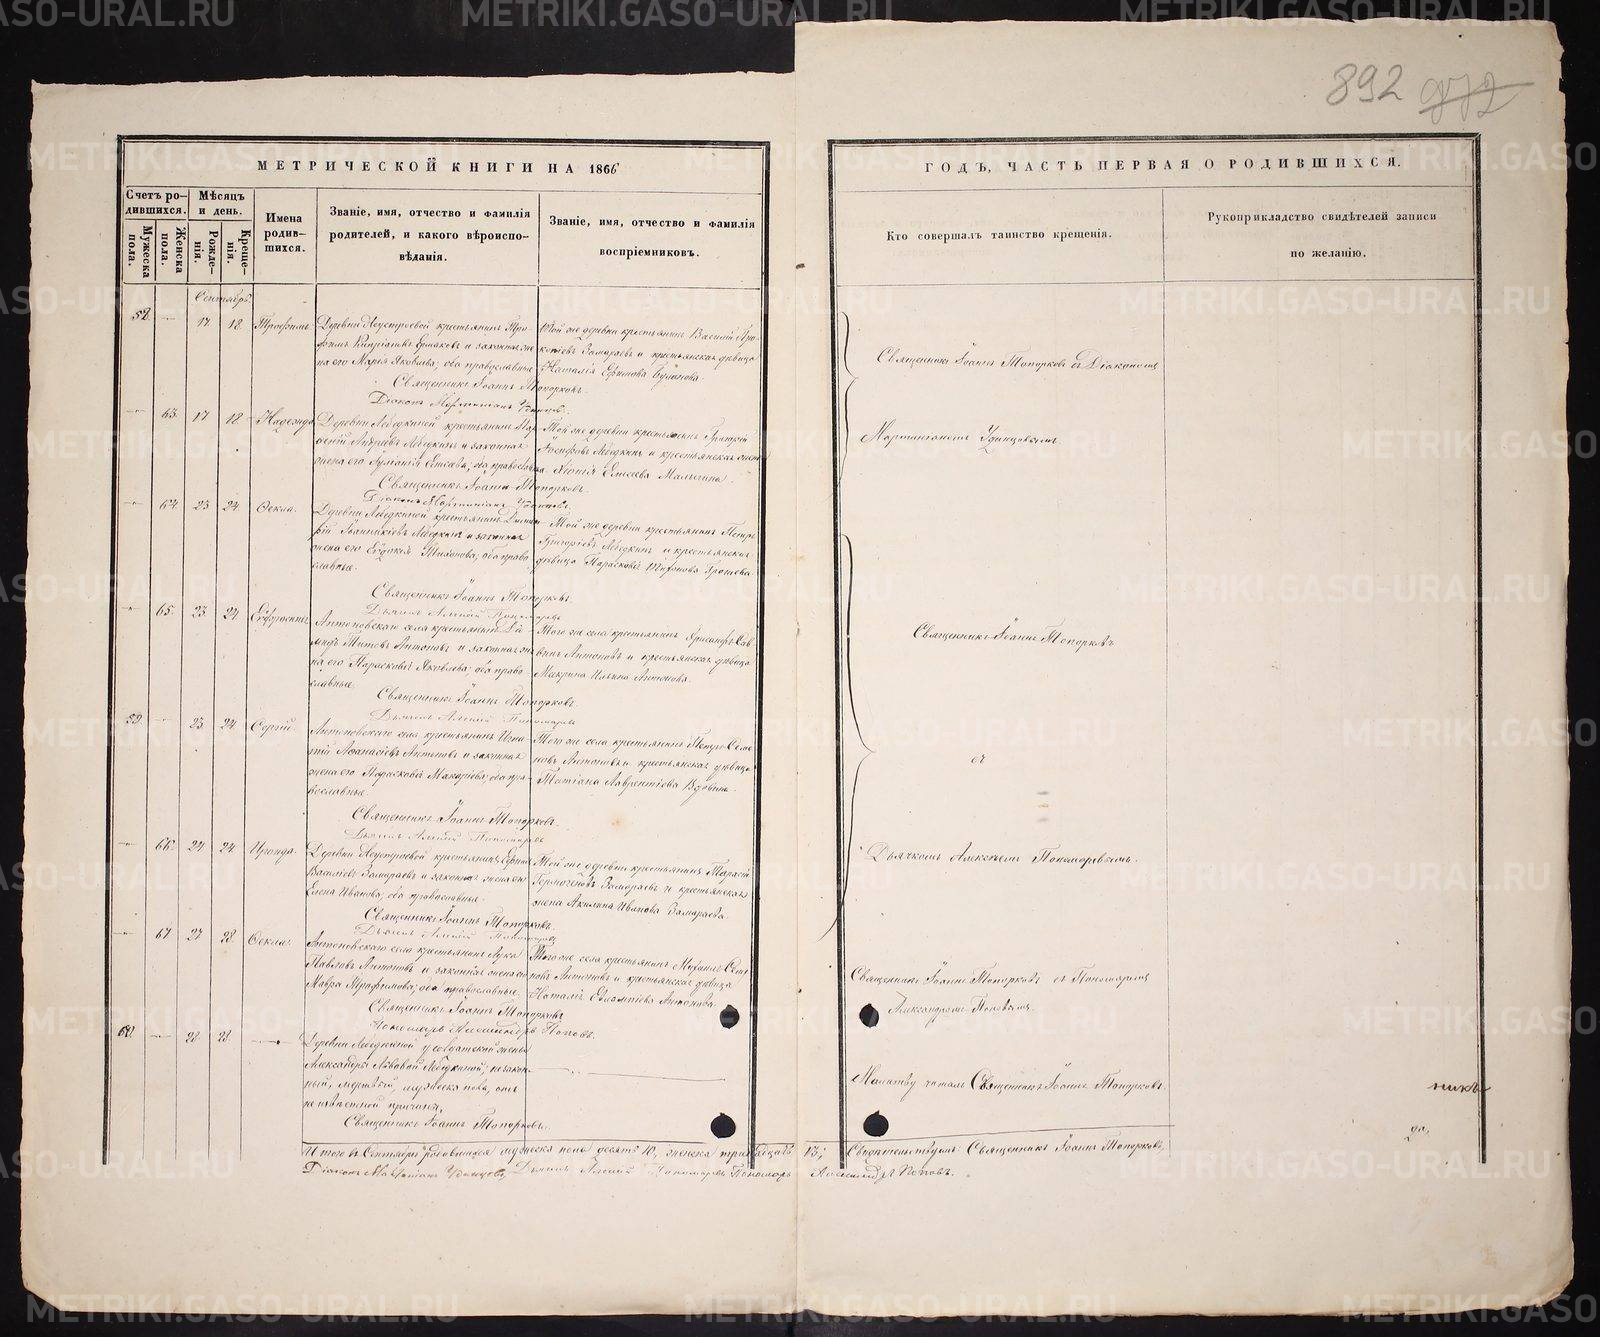 892
МЕТРИЧЕСКОЙ КНИГИ НА 1866
ГОДЪ, ЧАСТЬ ПЕРВАЯ О РОДИВШИХСЯ.
Счетъ ро-
дившихся.
Мужеска
пола.
Женска
пола.
Мѣсяцъ
и день.
Рожде-
нія.
Креще-
нія.
Имена
родив-
шихся.
Званіе, имя, отчество и фамилія
родителей, и какого вѣроиспо-
вѣданія.
Званіе, имя, отчество и фамилія
воспріемниковъ.
Кто совершалъ таинство крещенія.
Рукоприкладство свидѣтелей записи
по желанію.
Сентябрь.
17 18 Трофимъ
Деревни Неустроевой крестьянинъ Тро-
фимъ Ермаковъ и законная же-
на его Марѳа Яковлева; оба православные
Той же деревни крестьянинъ Василій Про-
копіевъ Замараевъ и крестьянская дѣвица
Наталія Буланова.
Священникъ Іоаннъ Топорковъ.
Діаконъ
Священникъ Іоаннъ Топорковъ съ Діакономъ
Удинцовымъ.
63. 17 18 Надежда
Деревни Лебедкиной крестьянинъ
Андреевъ Лебедкинъ и законная
жена его Елисеева; оба православные
Той же деревни крестьянинъ Григорій
Іосифовъ Лебедкинъ и крестьянская жена
Елисеева Малыгина.
Священникъ Іоаннъ Топорковъ.
Діаконъ
64. 23 24 Ѳекла.
Деревни Лебедкиной крестьянинъ
Іоанникіевъ Лебедкинъ и законная
жена его Евдокія Тихонова; оба право-
славные.
Той же деревни крестьянинъ Петръ
Григоріевъ Лебедкинъ и крестьянская
дѣвица Парасковія
Священникъ Іоаннъ Топорковъ.
Дьячекъ Алексій Пономаревъ
65. 23 24
Антоновскаго села крестьянинъ
Титовъ Антоновъ и законная же-
на его Парасковія Яковлева; оба право-
славные.
Того же села крестьянинъ Хрисанфъ Сав-
винъ Антоновъ и крестьянская дѣвица
Макрина Ильина Антонова.
Священникъ Іоаннъ Топорковъ.
Дьячекъ Алексій Пономаревъ
Священникъ Іоаннъ Топорковъ
съ
Дьячкомъ Алексѣемъ Пономаревымъ.
59. 23 24 Сергій.
Антоновскаго села крестьянинъ Игна-
тій Аѳанасіевъ Антоновъ и законная
жена его Парасковія Макаріева; оба пра-
вославные.
Того же села крестьянинъ Петръ Семе-
новъ Антоновъ и крестьянская дѣвица
Татіана Лаврентіева Вдовина.
Священникъ Іоаннъ Топорковъ.
Дьячекъ Алексій Пономаревъ
66. 24 24 Ираида.
Деревни Неустроевой крестьянинъ
Василіевъ Замараевъ и законная жена его
Елена Иванова; оба православные.
Той же деревни крестьянинъ Тарасій
Гермогеновъ Замараевъ и крестьянская
жена Акилина Иванова Замараева.
Священникъ Іоаннъ Топорковъ.
Дьячекъ Алексій Пономаревъ
67. 27 28 Ѳекла.
Антоновскаго села крестьянинъ Лука
Павловъ Антоновъ и законная жена его
Мавра Трофимова; оба православные.
Того же села крестьянинъ Михаилъ Семе-
новъ Антоновъ и крестьянская дѣвица
Наталія Евлампіева Антонова.
Священникъ Іоаннъ Топорковъ
Пономарь Александръ Поповъ.
Священникъ Іоаннъ Топорковъ съ Пономаремъ
Александромъ Поповымъ.
60. 28 28
Деревни Лебедкиной у солдатской жены
Александры Львовой Лебедкиной, незакон-
ный, мертвый, мужеска пола, отъ
неизвѣстной причины.
Священникъ Іоаннъ Топорковъ.
Молитву читалъ Священникъ Іоаннъ Топорковъ.
никъ
да,
Итого въ Сентябрѣ родившихся мужеска пола десять 10, женска тринадцать 13; Свидѣтельствуемъ: Священникъ Іоаннъ Топорковъ,
Діаконъ Удинцовъ, Дьячекъ Алексій Пономаревъ Пономарь Александръ Поповъ.
METRIKI.GASO-URAL.RU